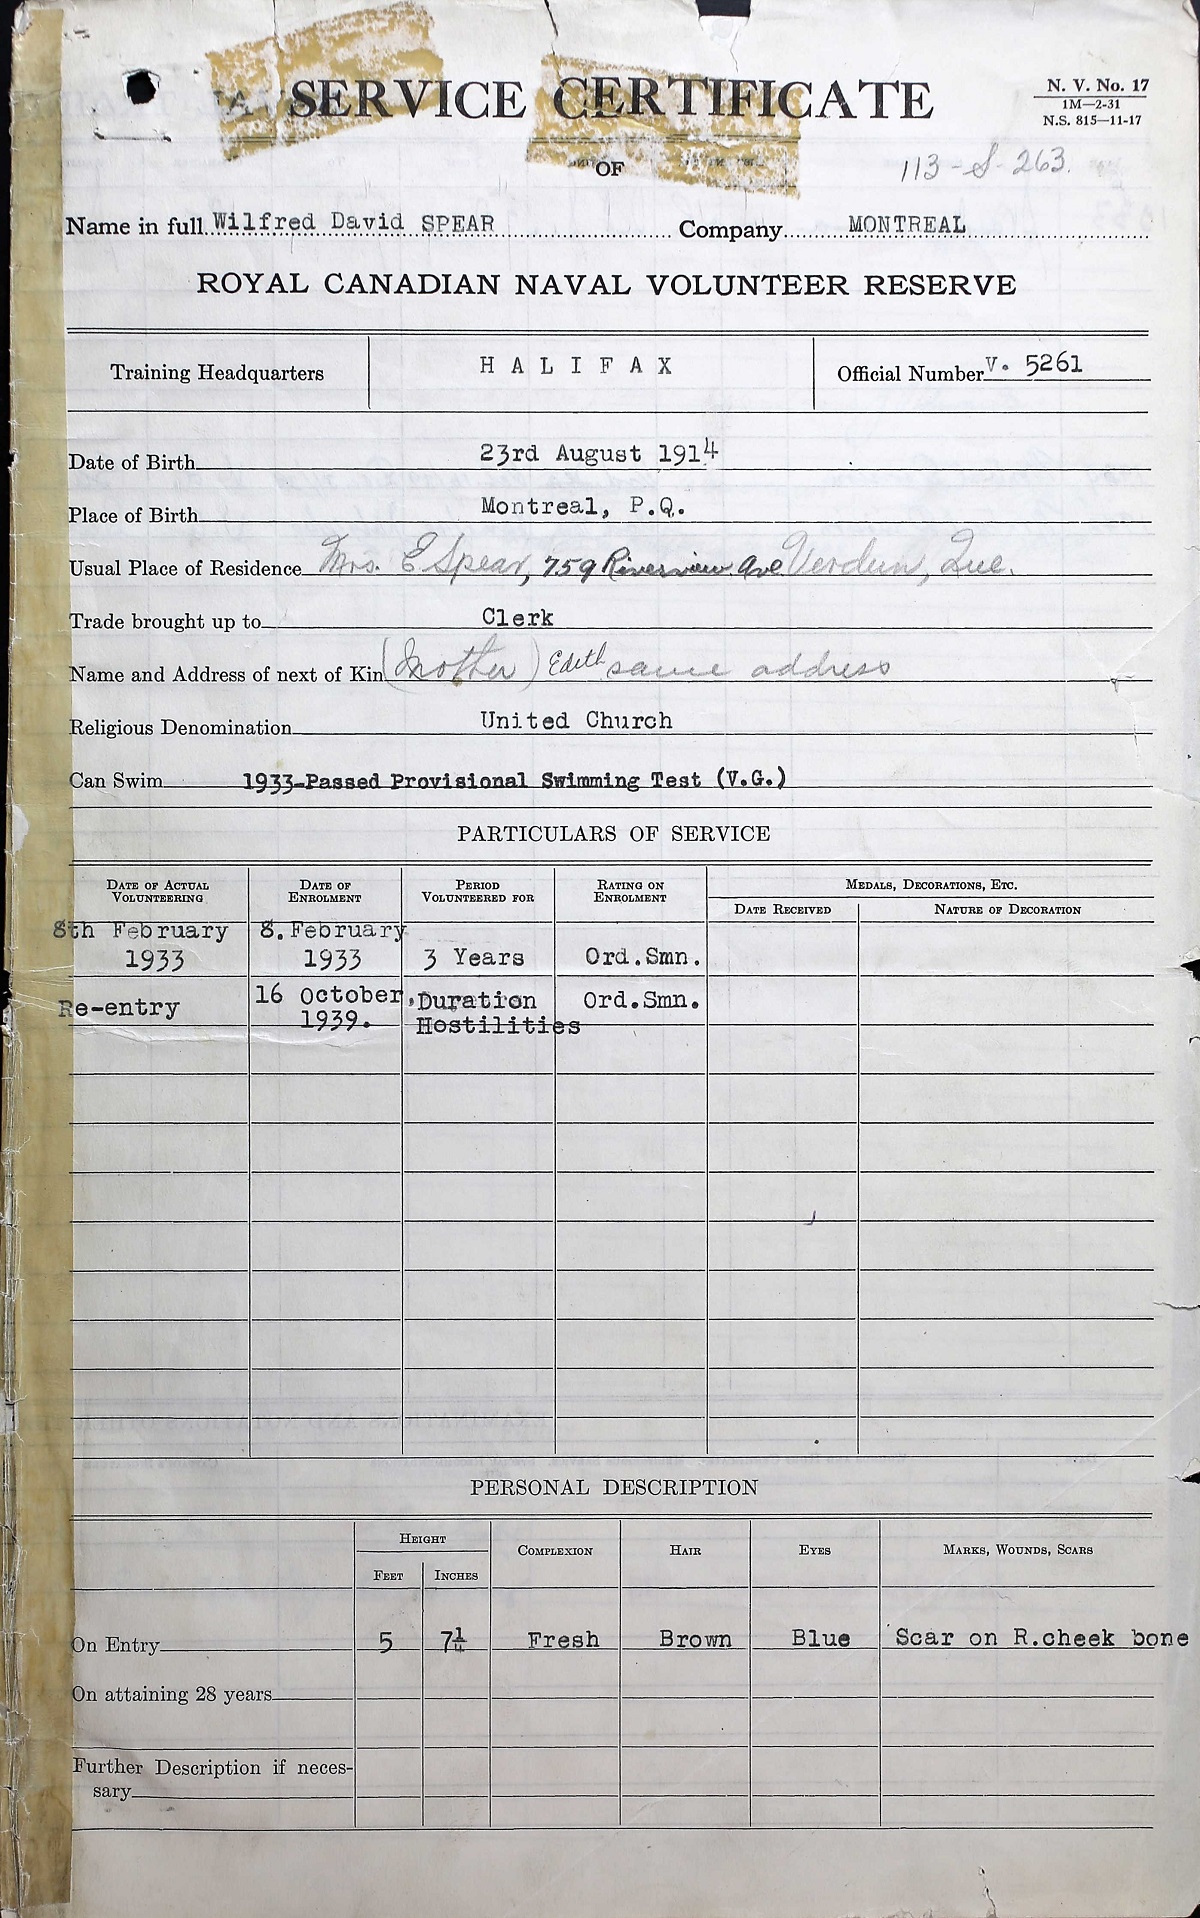 SERVICE CERTIFICATE
N. V. No. 17
1M—2-31
N.S. 815—11-17
OF
113-S-263.
Name in full Wilfred David SPEAR Company MONTREAL
ROYAL CANADIAN NAVAL VOLUNTEER RESERVE
Training Headquarters HALIFAX Official Number V. 5261
Date of Birth 23rd August 1914
Place of Birth Montreal, P.Q.
Usual Place of Residence Mrs. E Spear, 759 Riverview Ave Verdun, Que.
Trade brought up to Clerk
Name and Address of next of Kin (Mother) Edith same address
Religious Denomination United Church
Can Swim 1933-Passed Provisional Swimming Test (V.G.)
PARTICULARS OF SERVICE
DATE OF ACTUAL VOLUNTEERING DATE OF ENROLMENT PERIOD VOLUNTEERED FOR RATING ON ENROLMENT MEDALS, DECORATIONS, ETC.
DATE RECEIVED NATURE OF DECORATION
8th February 8. February
1933 1933 3 Years Ord.Smn.
Re-entry 16 October, Duration Ord.Smn.
1939. Hostilities
PERSONAL DESCRIPTION
HEIGHT COMPLEXION HAIR EYES MARKS, WOUNDS, SCARS
FEET INCHES
On Entry 5 7¼ Fresh Brown Blue Scar on R.cheek bone
On attaining 28 years
Further Description if neces-
sary